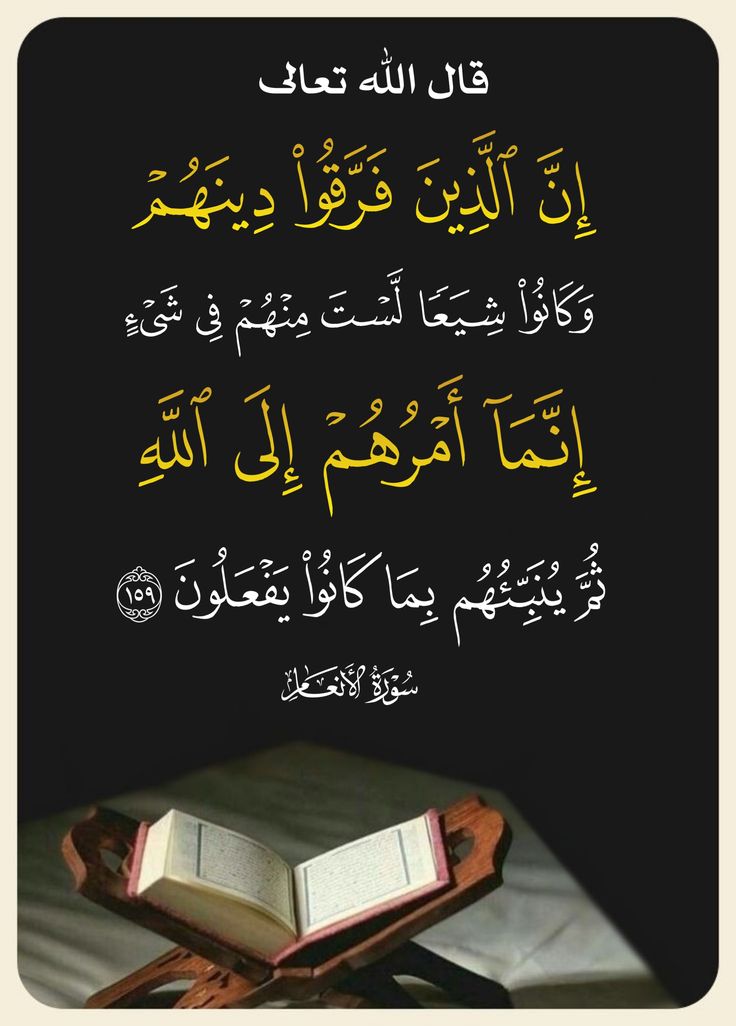 قال الله تعالى
إِنَّ ٱلَّذِينَ فَرَّقُوا۟ دِينَهُمْ
وَكَانُوا۟ شِيَعًا لَّسْتَ مِنْهُمْ فِى شَىْءٍ
إِنَّمَآ أَمْرُهُمْ إِلَى ٱللَّهِ
ثُمَّ يُنَبِّئُهُم بِمَا كَانُوا۟ يَفْعَلُونَ ١٥٩
سُورَةُ الأَنعَامِ